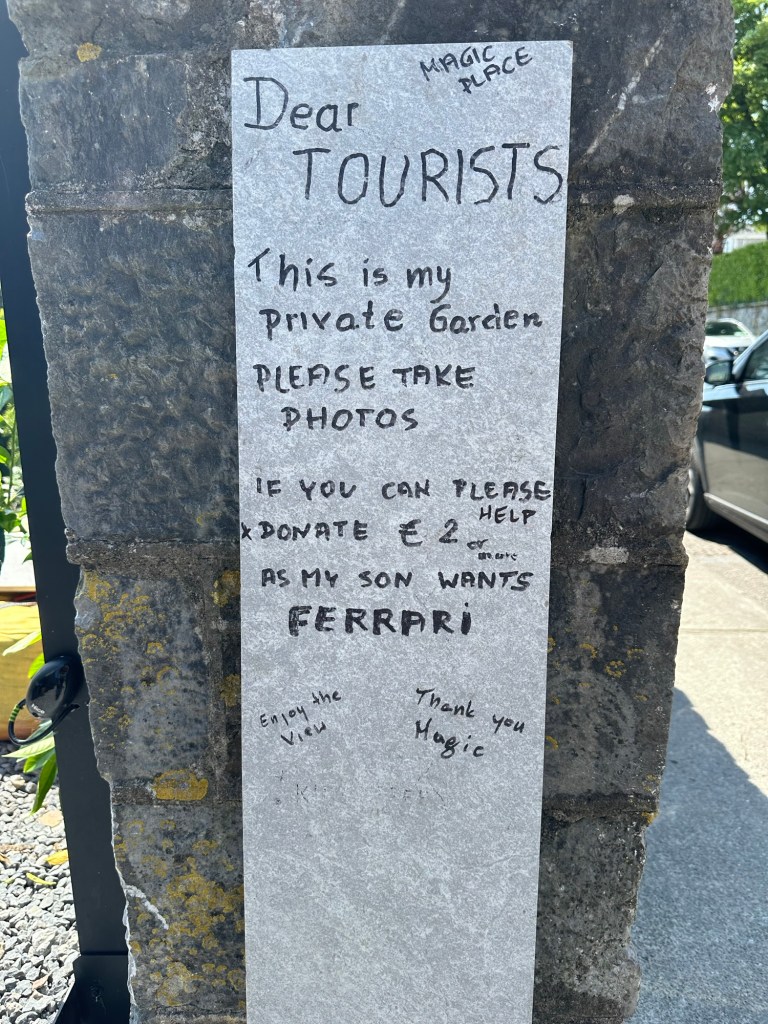 MAGIC
PLACE
Dear
TOURISTS
This is my
private Garden
PLEASE TAKE
PHOTOS
IF YOU CAN PLEASE
HELP
x DONATE € 2 or
more
AS MY SON WANTS
FERRARi
Enjoy the
View
Thank you
Magic